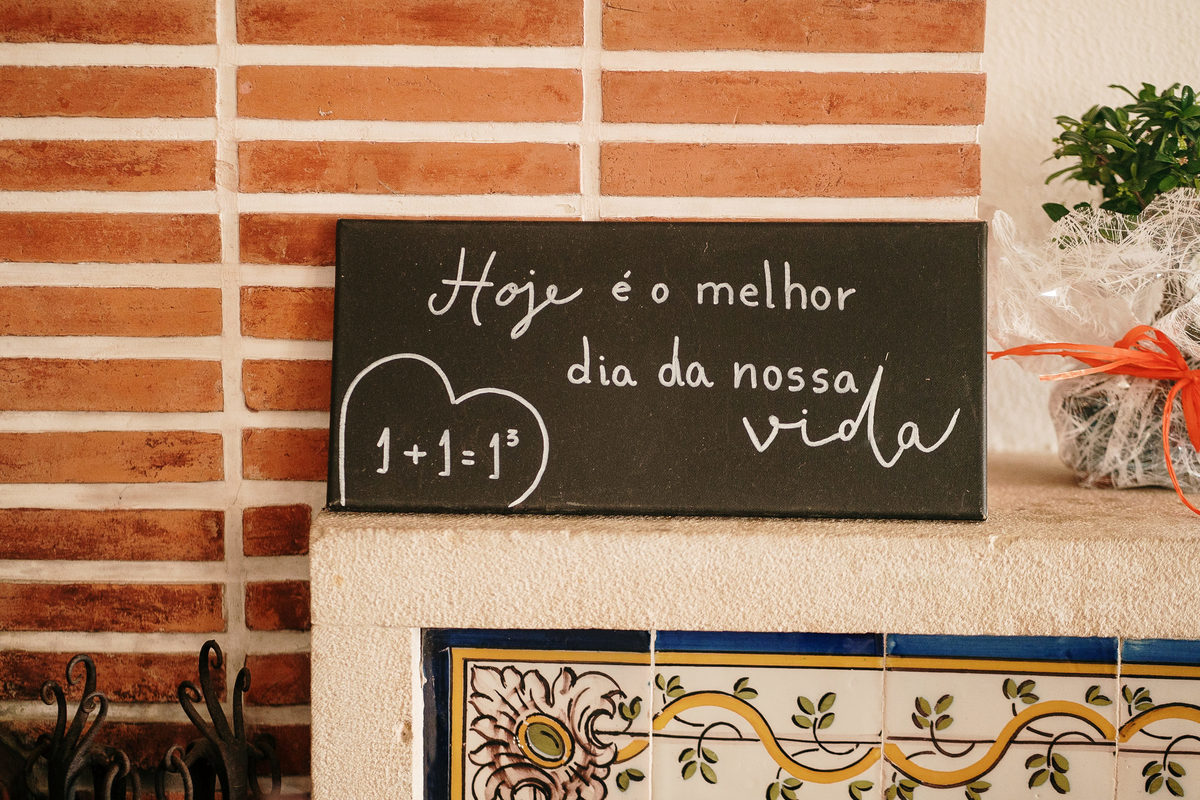 Hoje é o melhor
dia da nossa
vida
1+1=1³